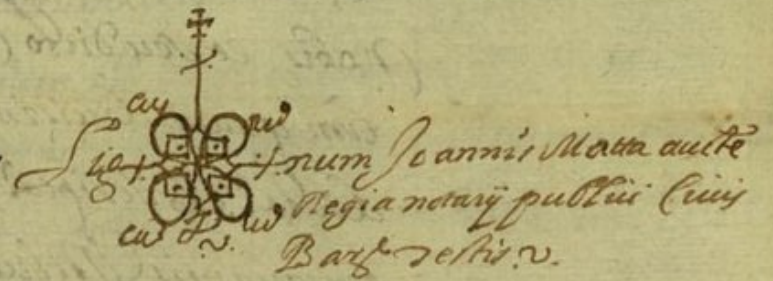 Sig+num Joannis Matta aucte
Regia notarij publici Civis
Barꝭ testis.